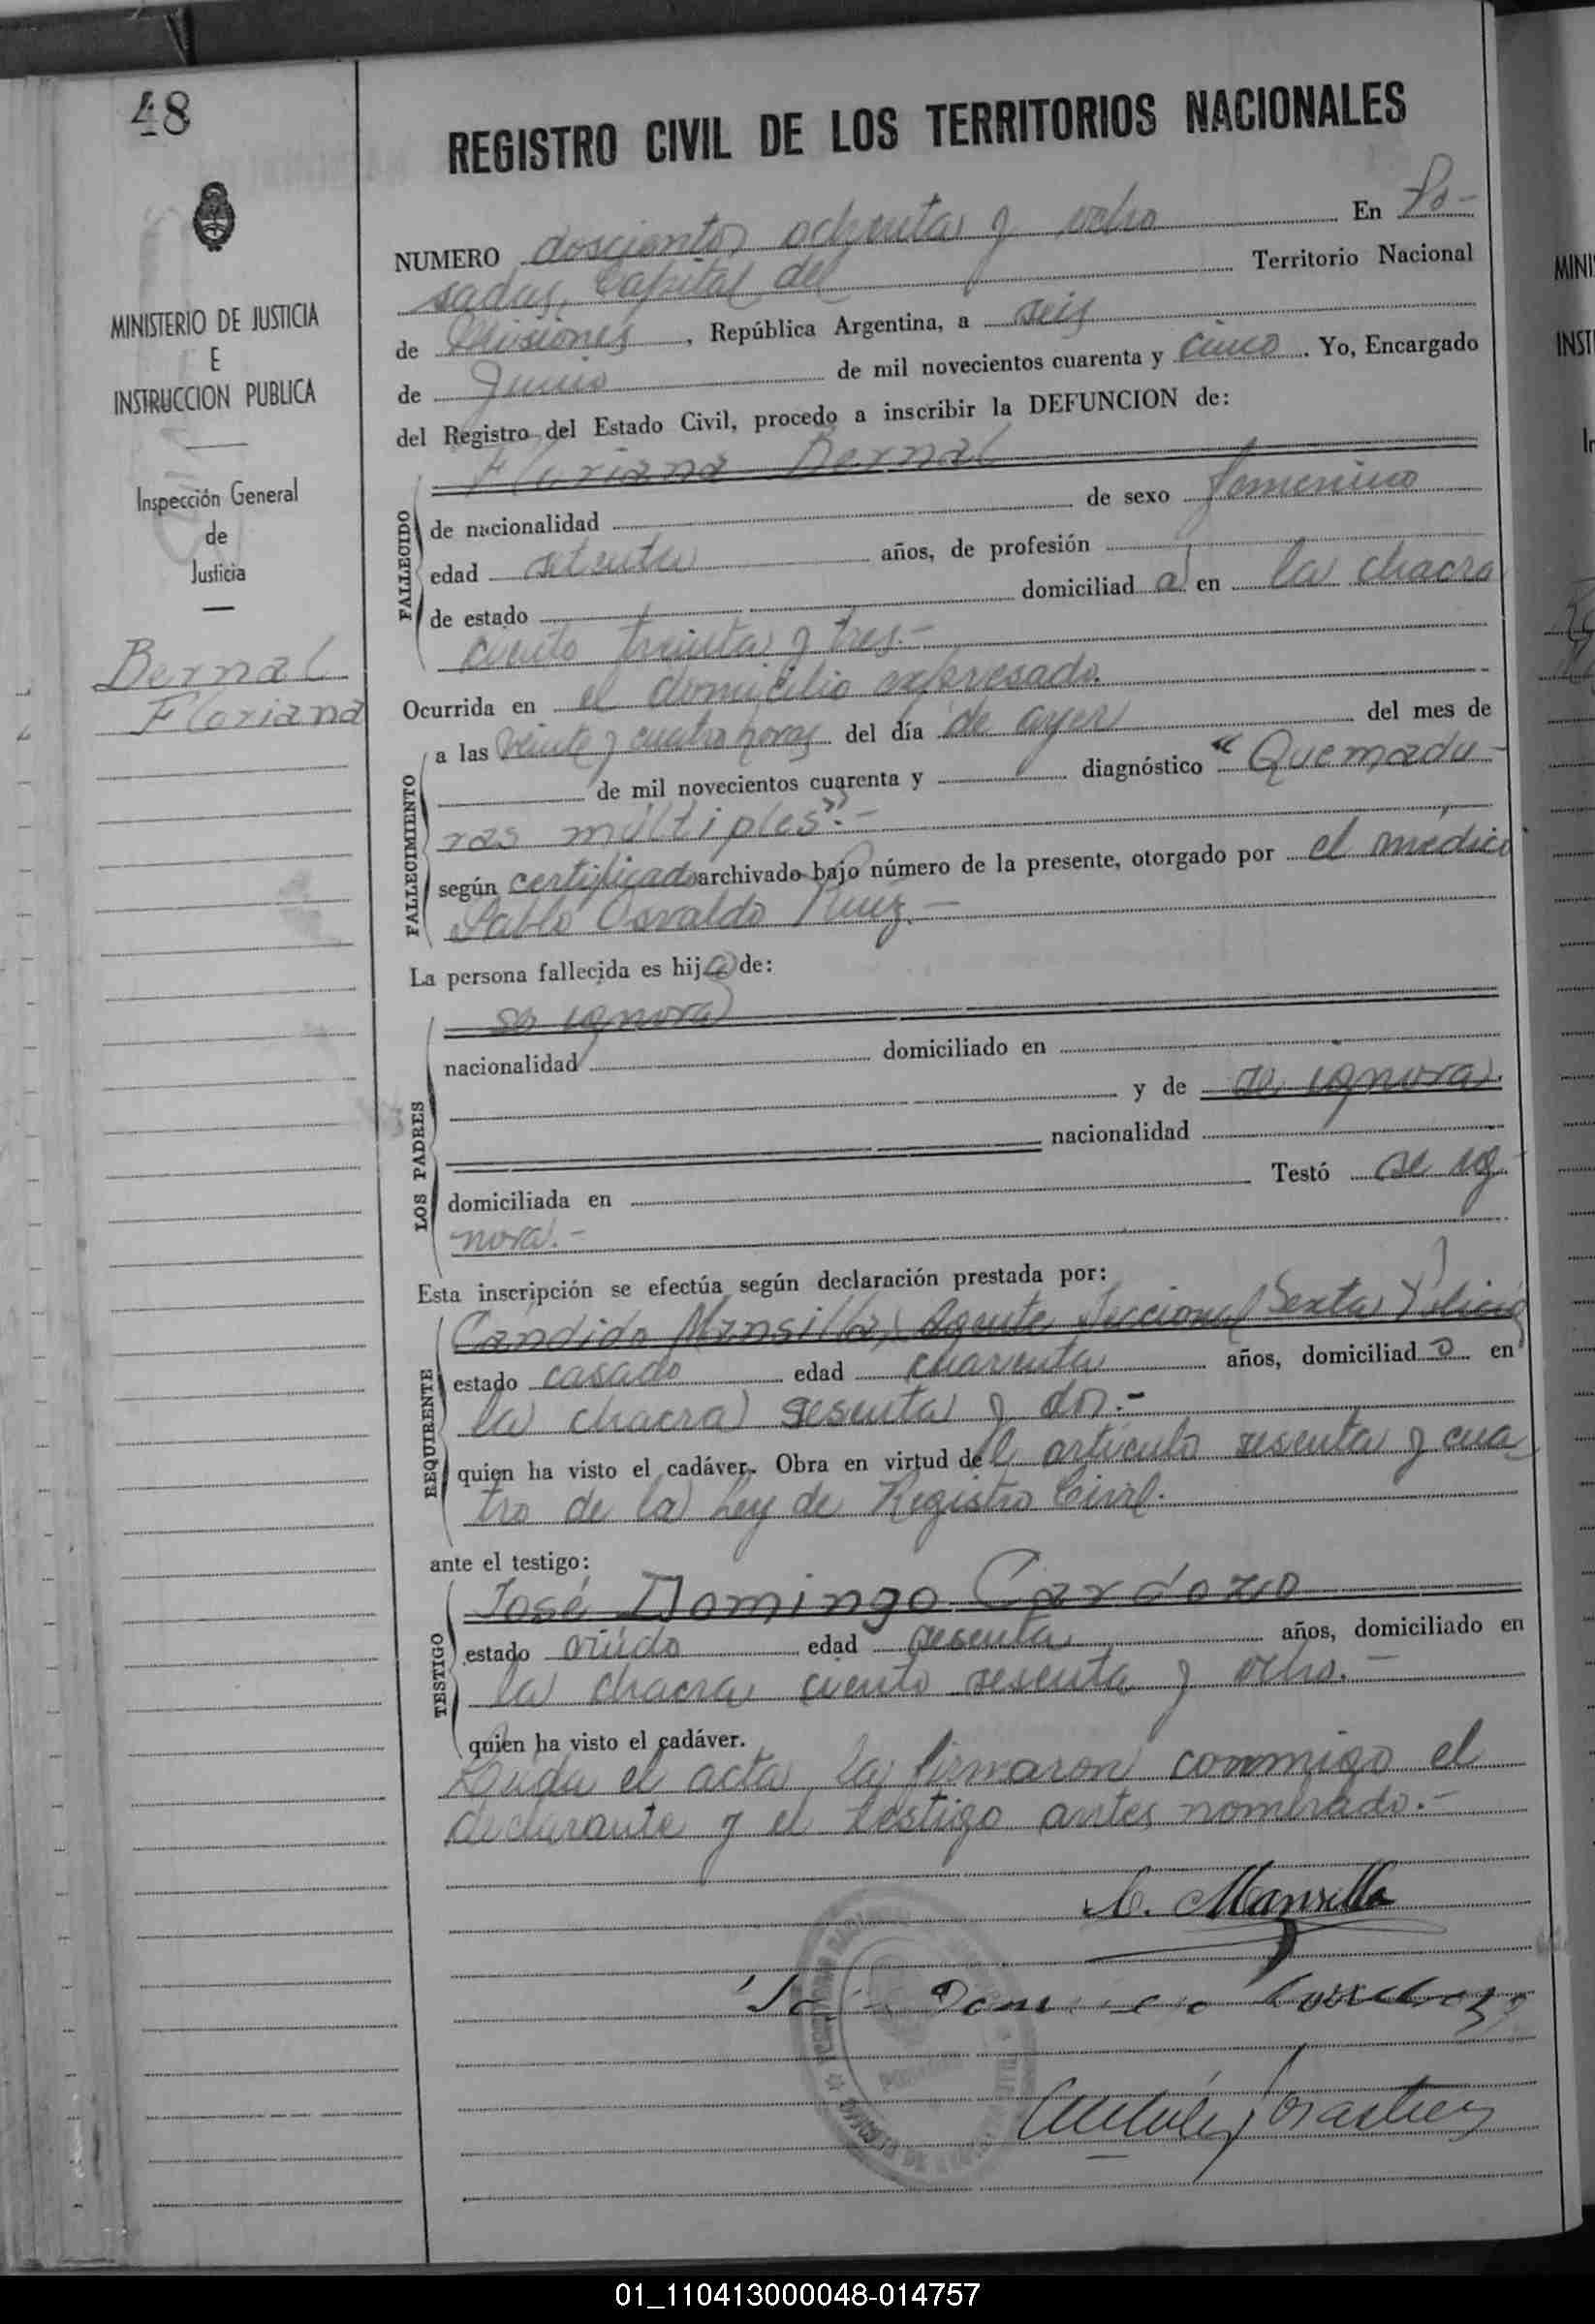 48
REGISTRO CIVIL DE LOS TERRITORIOS NACIONALES
MINISTERIO DE JUSTICIA
E
INSTRUCCION PUBLICA
Inspección General
de
Justicia
Bernal
Floriana
NUMERO doscientos ochenta y ocho En Po-
sadas, Capital del Territorio Nacional
de Misiones, República Argentina, a seis
de Junio de mil novecientos cuarenta y cinco. Yo, Encargado
del Registro del Estado Civil, procedo a inscribir la DEFUNCION de:
Floriana Bernal
FALLECIDO
de nacionalidad de sexo femenino
edad setenta años, de profesión
de estado domiciliad a en la chacra
ciento treinta y tres.-
Ocurrida en el domicilio expresado.
FALLECIMIENTO
a las veinte y cuatro horas del día de ayer del mes de
de mil novecientos cuarenta y diagnóstico "Quemadu-
ras múltiples".-
según certificado archivado bajo número de la presente, otorgado por el médico
Pablo Osvaldo Ruiz.-
La persona fallecida es hija de:
LOS PADRES
se ignora
nacionalidad domiciliado en
y de se ignora.
nacionalidad
domiciliada en Testó se ig-
nora.-
Esta inscripción se efectúa según declaración prestada por:
REQUIRENTE
Cándido Mansilla, Agente Seccional Sexta Policia
estado casado edad cuarenta años, domiciliad o en
la chacra sesenta y dos.-
quien ha visto el cadáver. Obra en virtud del artículo sesenta y cua
tro de la Ley de Registro Civil.
ante el testigo:
TESTIGO
José Domingo Cardozo
estado viudo edad sesenta años, domiciliado en
la chacra ciento sesenta y ocho.-
quien ha visto el cadáver.
Leída el acta la firmaron conmigo el
declarante y el testigo antes nombrado.-
C. Mansilla
01_110413000048-014757